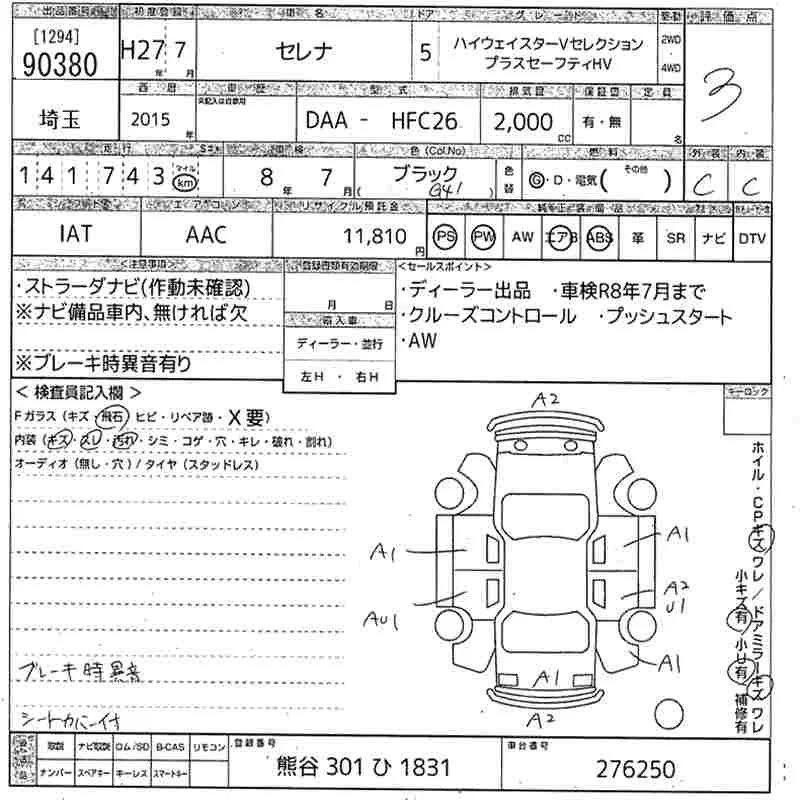 出品番号 初度登録 車名 ドア グレード 駆動 評価点
[1294]
90380 H27年 7月 セレナ 5 ハイウェイスターVセレクション
プラスセーフティHV 2WD
4WD 3
西暦 車歴 型式 排気量 保証書 定員
埼玉 2015年 DAA - HFC26 2,000cc 有・無 名
走行 車検 色(Col.No) 燃料 外装 内装
141743 マイル km 8年 7月 ブラック
( G41 ) 色替 G・D・電気( その他 ) C C
シフト エアコン リサイクル預託金 純正装備品
IAT AAC 11,810円 PS PW AW エアB ABS 革 SR ナビ DTV
<注意事項> 登録書類有効期限 <セールスポイント>
・ストラーダナビ(作動未確認)
※ナビ備品車内、無ければ欠
※ブレーキ時異音有り
月 日
輸入車
ディーラー・並行
左H ・ 右H
・ディーラー出品 ・車検R8年7月まで
・クルーズコントロール ・プッシュスタート
・AW
< 検査員記入欄 > キーロック
Fガラス (キズ・飛石・ヒビ・リペア跡・X要)
内装 (キズ・スレ・汚れ・シミ・コゲ・穴・キレ・破れ・割れ)
オーディオ (無し・穴) / タイヤ (スタッドレス)
A2
A1 A1
AU1 A2
U1
A1 A1
A2
ホイル・CPキズ ワレ/ドアミラーキズ ワレ
小キズ有/小U有 補修有
ブレーキ時異音
シートカバー付
取説 ナビ取説 ロム/SD B-CAS リモコン
ナンバー スペアキー キーレス スマートキー
登録番号 車台番号
熊谷 301 ひ 1831 276250